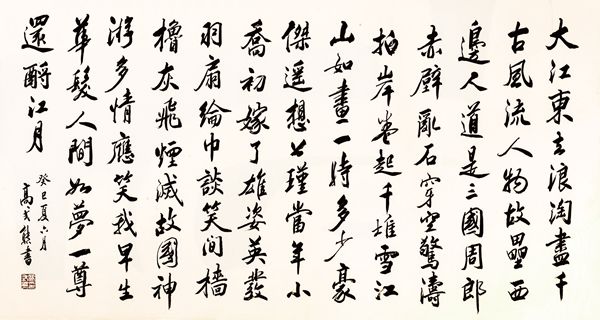 大江東去浪淘盡千
古風流人物故壘西
邊人道是三國周郎
赤壁亂石穿空驚濤
拍岸卷起千堆雪江
山如畫一時多少豪
傑遥想公瑾當年小
喬初嫁了雄姿英發
羽扇綸巾談笑間檣
櫓灰飛煙滅故國神
游多情應笑我早生
華髮人間如夢一尊
還酹江月
癸巳夏六月
高式熊書